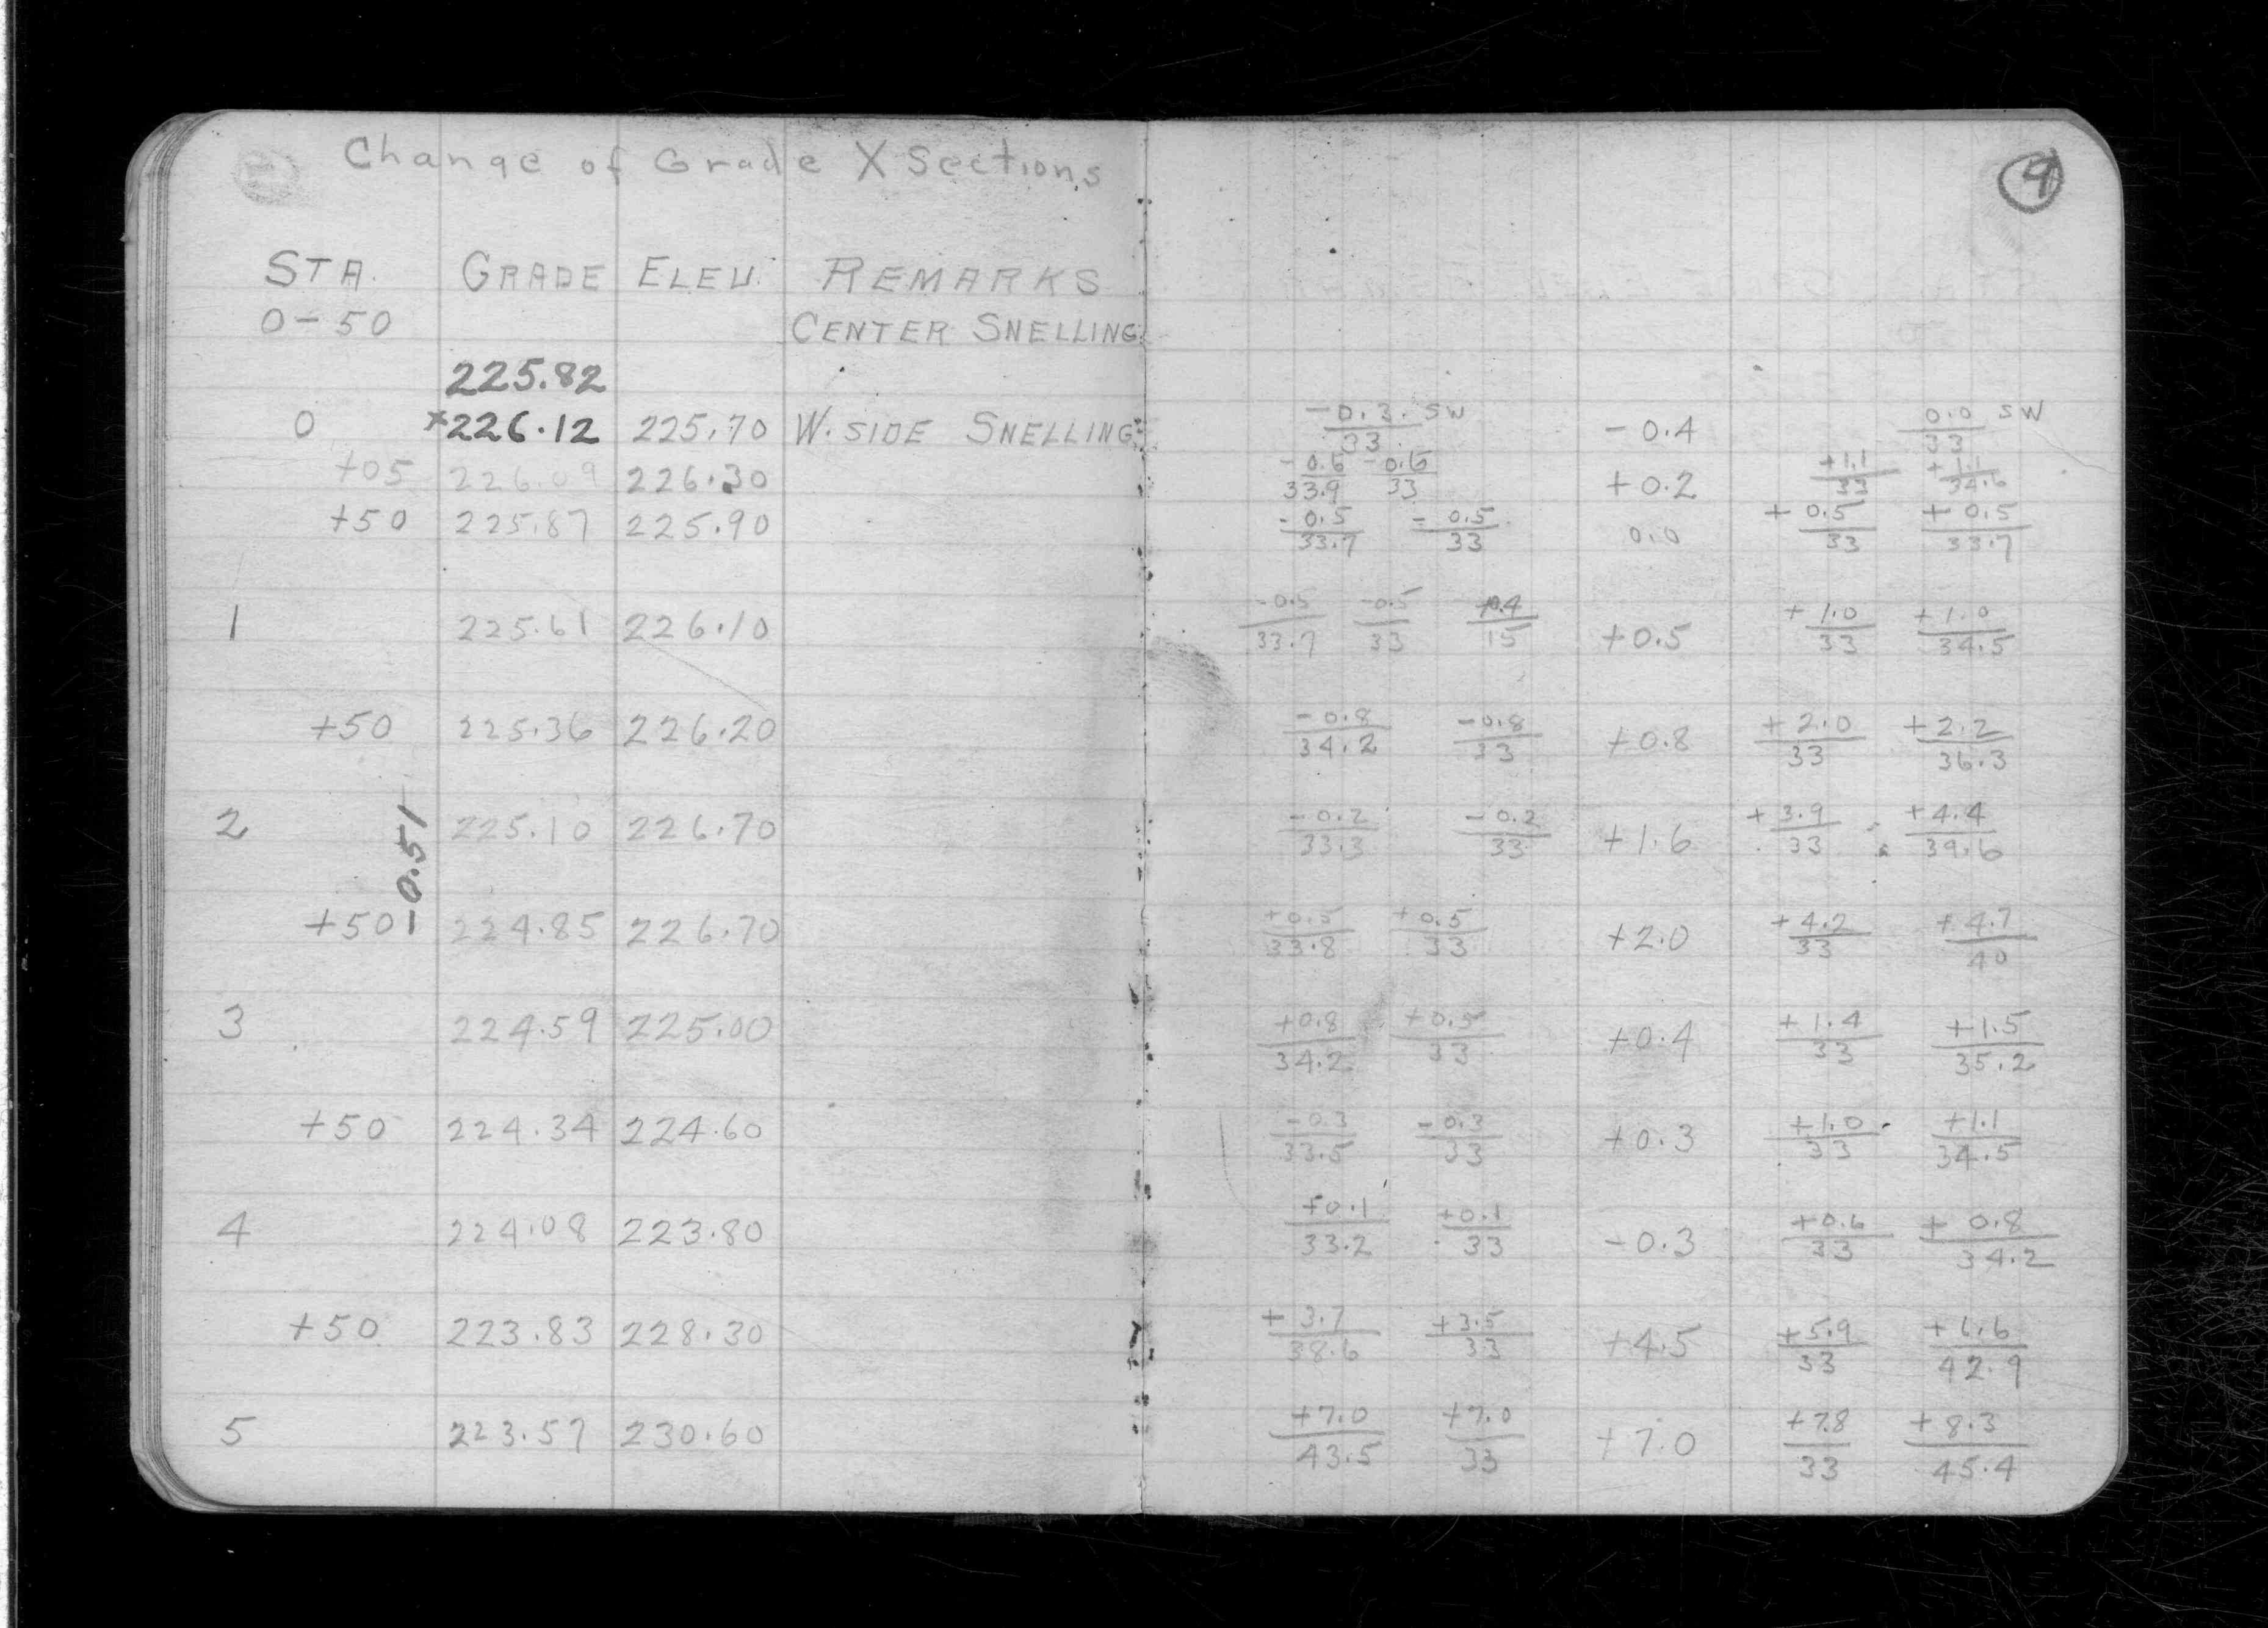 Change of Grade X Sections
4
STA. GRADE ELEV. REMARKS
0-50 CENTER SNELLING
225.82
0 x226.12 225.70 W. SIDE SNELLING -0.3/33 SW -0.4 0.0/33 SW
+05 226.09 226.30 -0.6/33.9 -0.6/33 +0.2 +1.1/33 +1.1/34.6
+50 225.87 225.90 -0.5/33.7 -0.5/33 0.0 +0.5/33 +0.5/33.7
1 225.61 226.10 -0.5/33.7 -0.5/33 +0.4/15 +0.5 +1.0/33 +1.0/34.5
+50 225.36 226.20 -0.8/34.2 -0.8/33 +0.8 +2.0/33 +2.2/36.3
2 225.10 226.70 -0.2/33.3 -0.2/33 +1.6 +3.9/33 +4.4/39.6
-0.51
+50 224.85 226.70 +0.5/33.8 +0.5/33 +2.0 +4.2/33 +4.7/40
3 224.59 225.00 +0.8/34.2 +0.5/33 +0.4 +1.4/33 +1.5/35.2
+50 224.34 224.60 -0.3/33.5 -0.3/33 +0.3 +1.0/33 +1.1/34.5
4 224.08 223.80 +0.1/33.2 +0.1/33 -0.3 +0.6/33 +0.8/34.2
+50 223.83 228.30 +3.7/38.6 +3.5/33 +4.5 +5.9/33 +6.6/42.9
5 223.57 230.60 +7.0/43.5 +7.0/33 +7.0 +7.8/33 +8.3/45.4